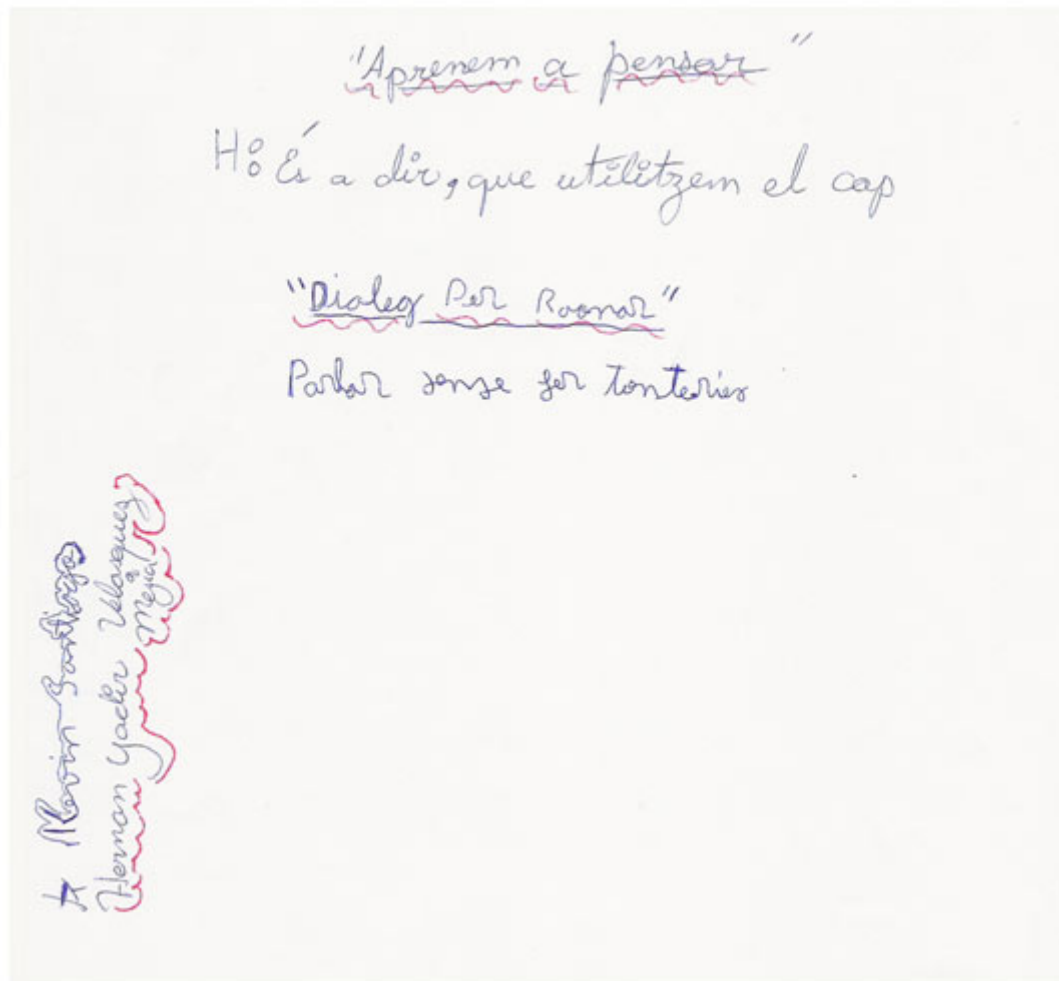 "Aprenem a pensar"
H: És a dir, que utilitzem el cap
"Dialeg Per Raonar"
Parlar sense fer tonteries
Kevin Santiago
Hernan Yadir Velasquez
Mejia